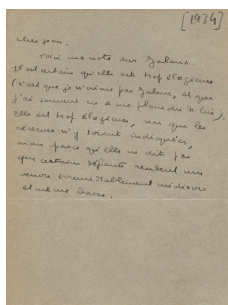 [1934]
cher Jean,
Voici ma note sur Jaloux.
Il est certain qu'elle est trop élogieuse
(c'est que je n'aime pas Jaloux, et que
j'ai souvent eu à me plaindre de lui).
Elle est trop élogieuse, non que les
réserves n'y soient indiquées,
mais parce qu'elle ne dit pas
que certains défauts rendent une
œuvre irrémédiablement médiocre
et même basse.